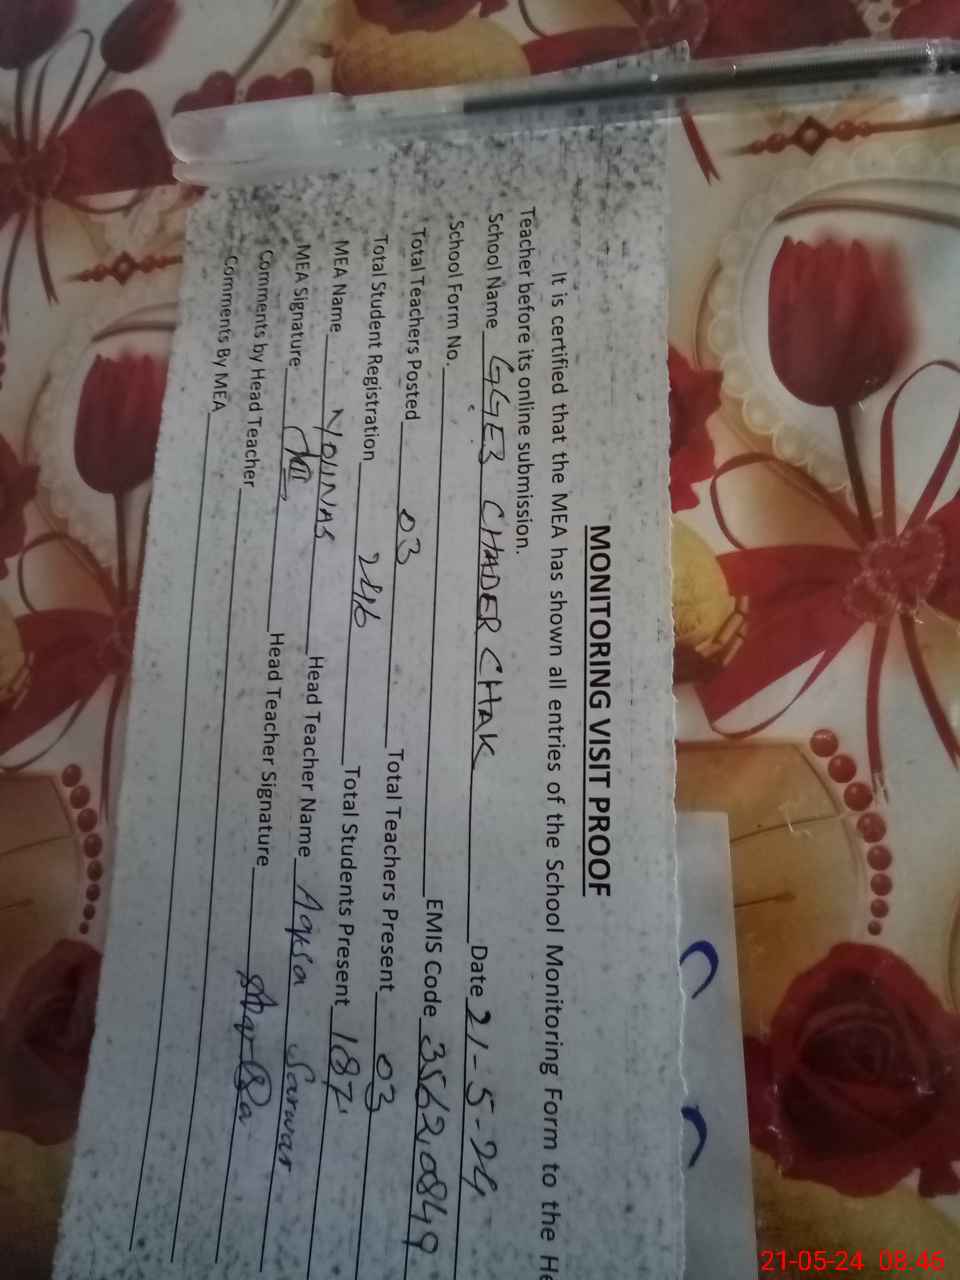 MONITORING VISIT PROOF
It is certified that the MEA has shown all entries of the School Monitoring Form to the He
Teacher before its online submission.
School Name GGES CHADER CHAK Date 21-5-24
School Form No. EMIS Code 35620849
Total Teachers Posted 03 Total Teachers Present 03
Total Student Registration 246 Total Students Present 187
MEA Name YOUNAS Head Teacher Name Aqsa Sarwar
MEA Signature Head Teacher Signature Aqsa
Comments by Head Teacher
Comments By MEA
21-05-24 08:46